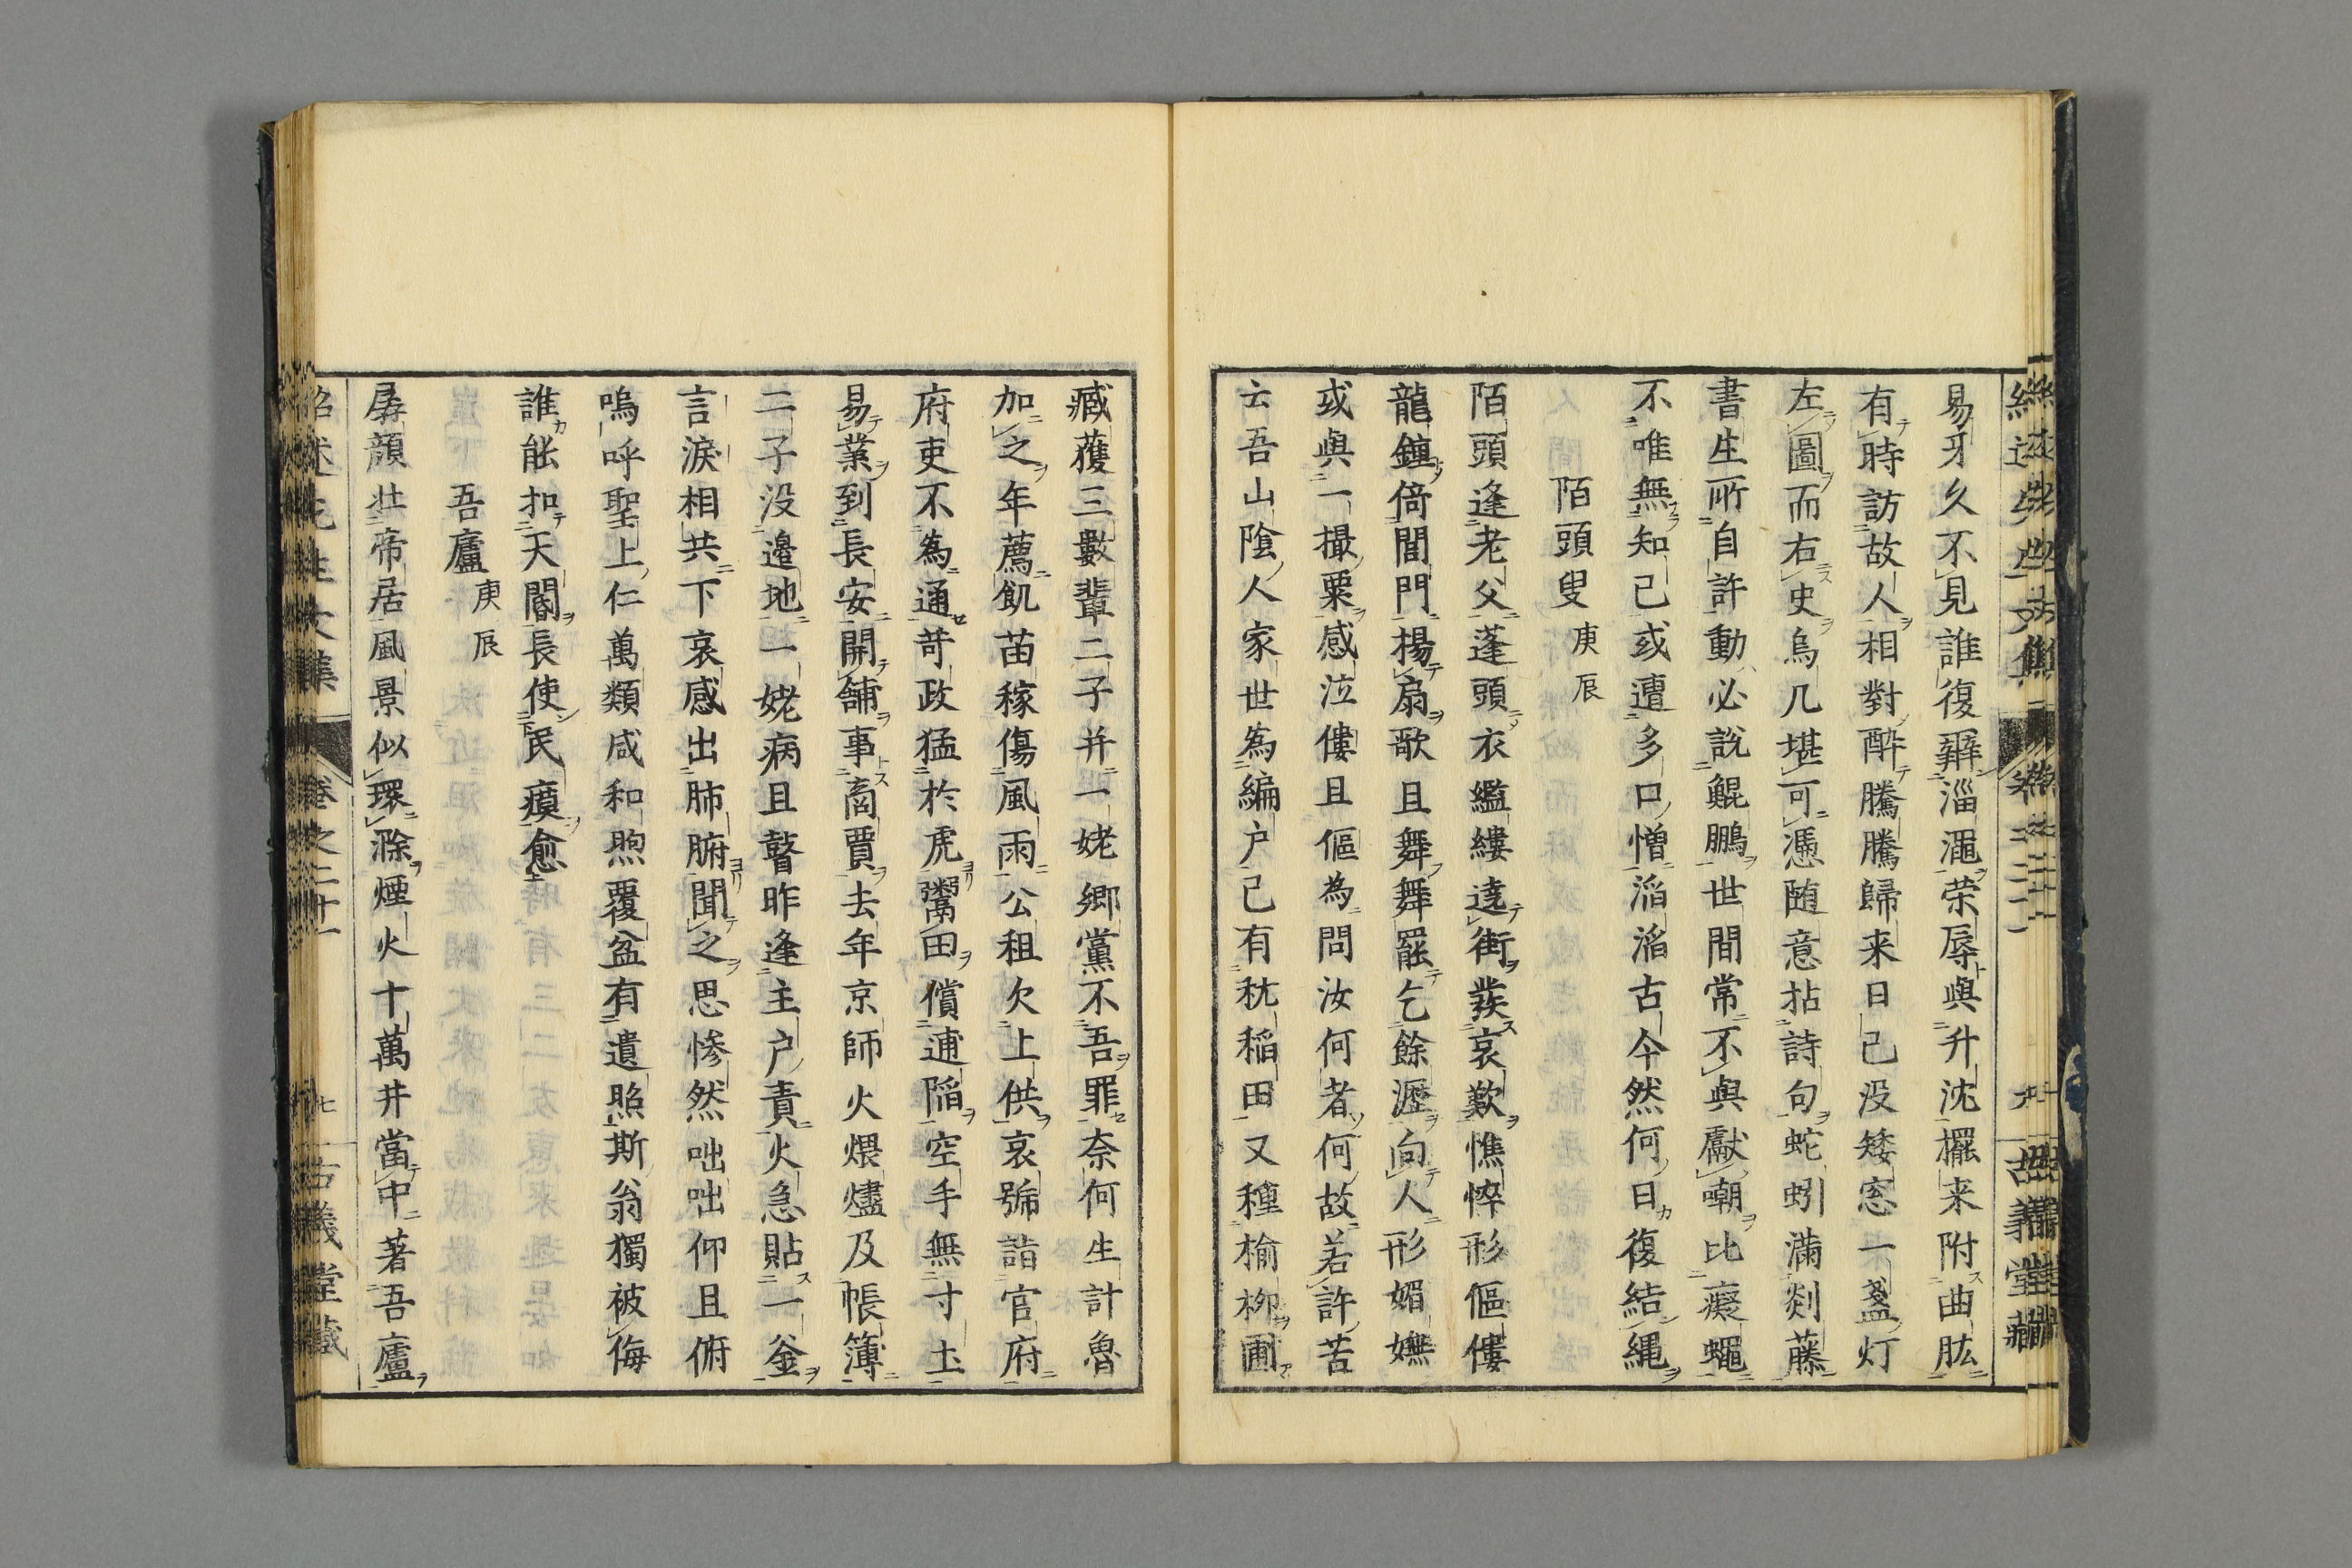 易牙久不見誰復辨淄澠榮辱與升沈擺来附曲肱
有時訪故人相對酔騰騰歸来日已没矮窓一盞灯
左圖而右史烏几堪可憑随意拈詩句蛇蚓滿剡藤
書生所自許動必說鯤鵬世間常不與厭嘲比癡蠅
不唯無知己或遭多口憎滔滔古今然何日復結縄
陌頭叟庚辰
陌頭逢老父蓬頭衣襤縷遶街發哀歎憔悴形傴僂
龍鍾倚閭門揚扇歌且舞舞罷乞餘瀝向人形媚嫵
或與一撮粟感泣僂且傴為問汝何者何故若許苦
云吾山陰人家世為編户已有秔稲田又種榆柳圃
臧蒦三數輩二子并一姥郷黨不吾罪奈何生計魯
加之年薦飢苗稼傷風雨公租欠上供哀號詣官府
府吏不為通苛政猛於虎鬻田償逋陥空手無寸土
易業到長安開舗事啇賈去年京師火煨燼及帳簿
二子没邉地一姥病且瞽昨逢主户責火急貼一釜
言淚相共下哀感出肺腑聞之思惨然咄咄仰且俯
嗚呼聖上仁萬類咸和煦覆盆有遺照斯翁獨被侮
誰能扣天閽長使民瘼愈
吾廬庚辰
孱顔壮帝居風景似環滁煙火十萬井當中著吾廬
紹述先生文集
卷之二十一
七
古義堂藏